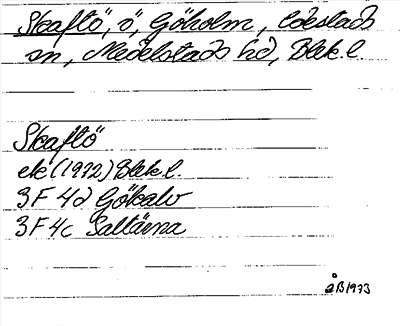 Skaftö, ö, Göholm, Edestads
sn, Medelstads hd, Blek. l.
Skaftö
ek (1972) Blek. l.
3F 4d Gökalv
3F 4c Saltärna
åB 1973